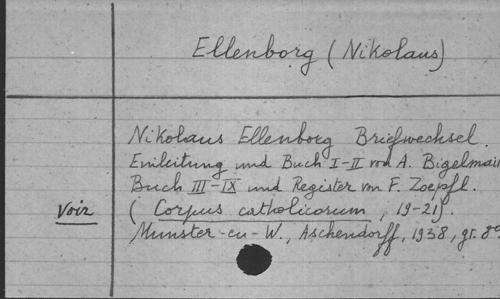 Ellenborg (Nikolaus)
Nikolaus Ellenborg Briefwechsel.
Einleitung und Buch I-II von A. Bigelmair
Buch III-IX und Register von F. Zoepfl.
Voir (Corpus catholicorum, 19-21).
Munster-en-W., Aschendorff, 1938, gr. 8°